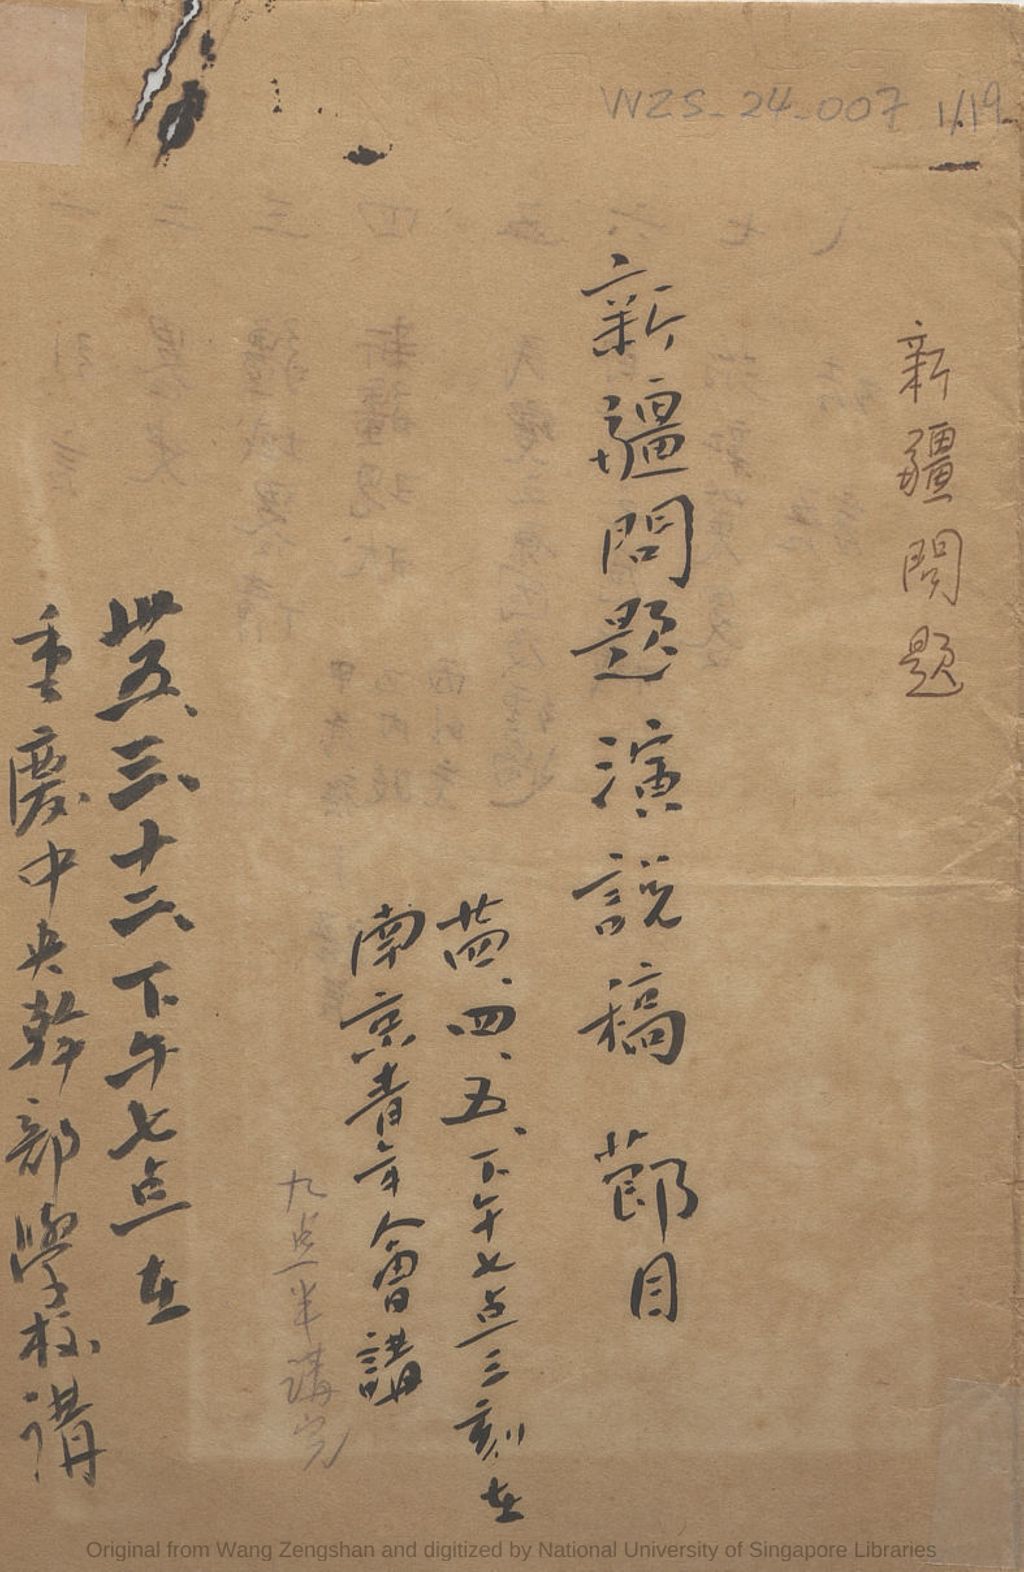 WZS-24-007 1/19
新疆問題
新疆問題演說稿 節目
廿四、四、五、下午七点三刻在
南京青年會講
九点半講完
卅五、三、十二、下午七点在
重慶中央幹部學校講
Original from Wang Zengshan and digitized by National University of Singapore Libraries